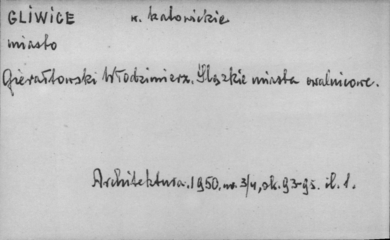 GLIWICE w. katowickie
miasto
Gierałtowski Włodzimierz. Śląskie miasta owalnicowe.
Architektura. 1950. nr 3/4, sk. 93-95. il. 1.